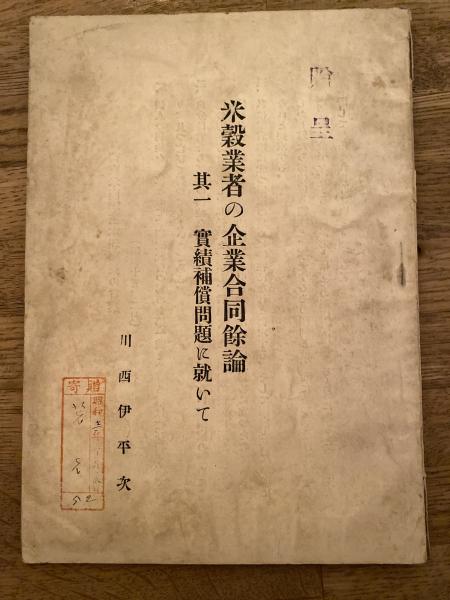 贈呈
米穀業者の企業合同餘論
其一 實績補償問題に就いて
川西伊平次
寄贈
昭和